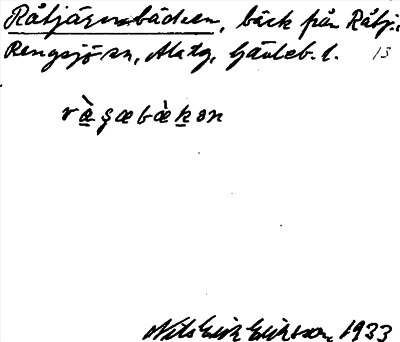 Råtjärnsbäcken, bäck från Råtj.,
Rengsjö sn, Alfta, Gävleb. l. 13
r æ̀ ʂ æ b æ̀ k ə n
Nils Erik Eriksson, 1933